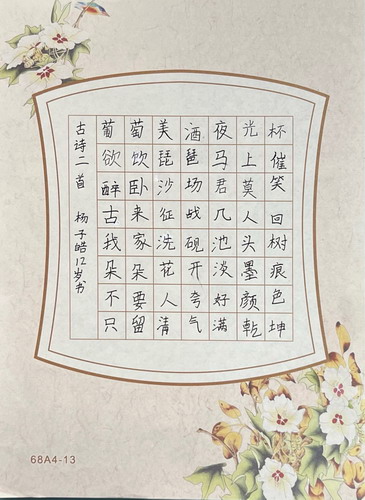 古诗二首 杨子皓12岁书
葡萄美酒夜光杯
欲饮琵琶马上催
醉卧沙场君莫笑
古来征战几人回
我家洗砚池头树
朵朵花开淡墨痕
不要人夸好颜色
只留清气满乾坤
68A4-13